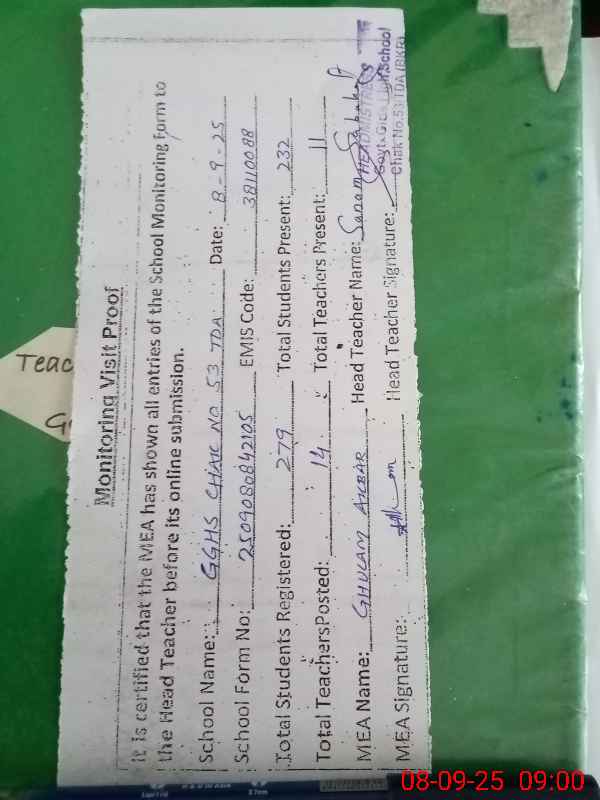 Monitoring Visit Proof
it is certified that the MEA has shown all entries of the School Monitoring Form to
the Head Teacher before its online submission.
School Name: GGHS CHAK NO 53 TDA Date: 8-9-25
School Form No: 2509080842105 EMIS Code: 38110088
Total Students Registered: 279 Total Students Present: 232
Total Teachers Posted: 14 Total Teachers Present: 11
MEA Name: GHULAM AKBAR Head Teacher Name: Sanam
MEA Signature: Head Teacher Signature:
HEADMISTRESS
Govt. Girls High School
Chak No.53/TDA (BKR)
Teac
G
08-09-25 09:00